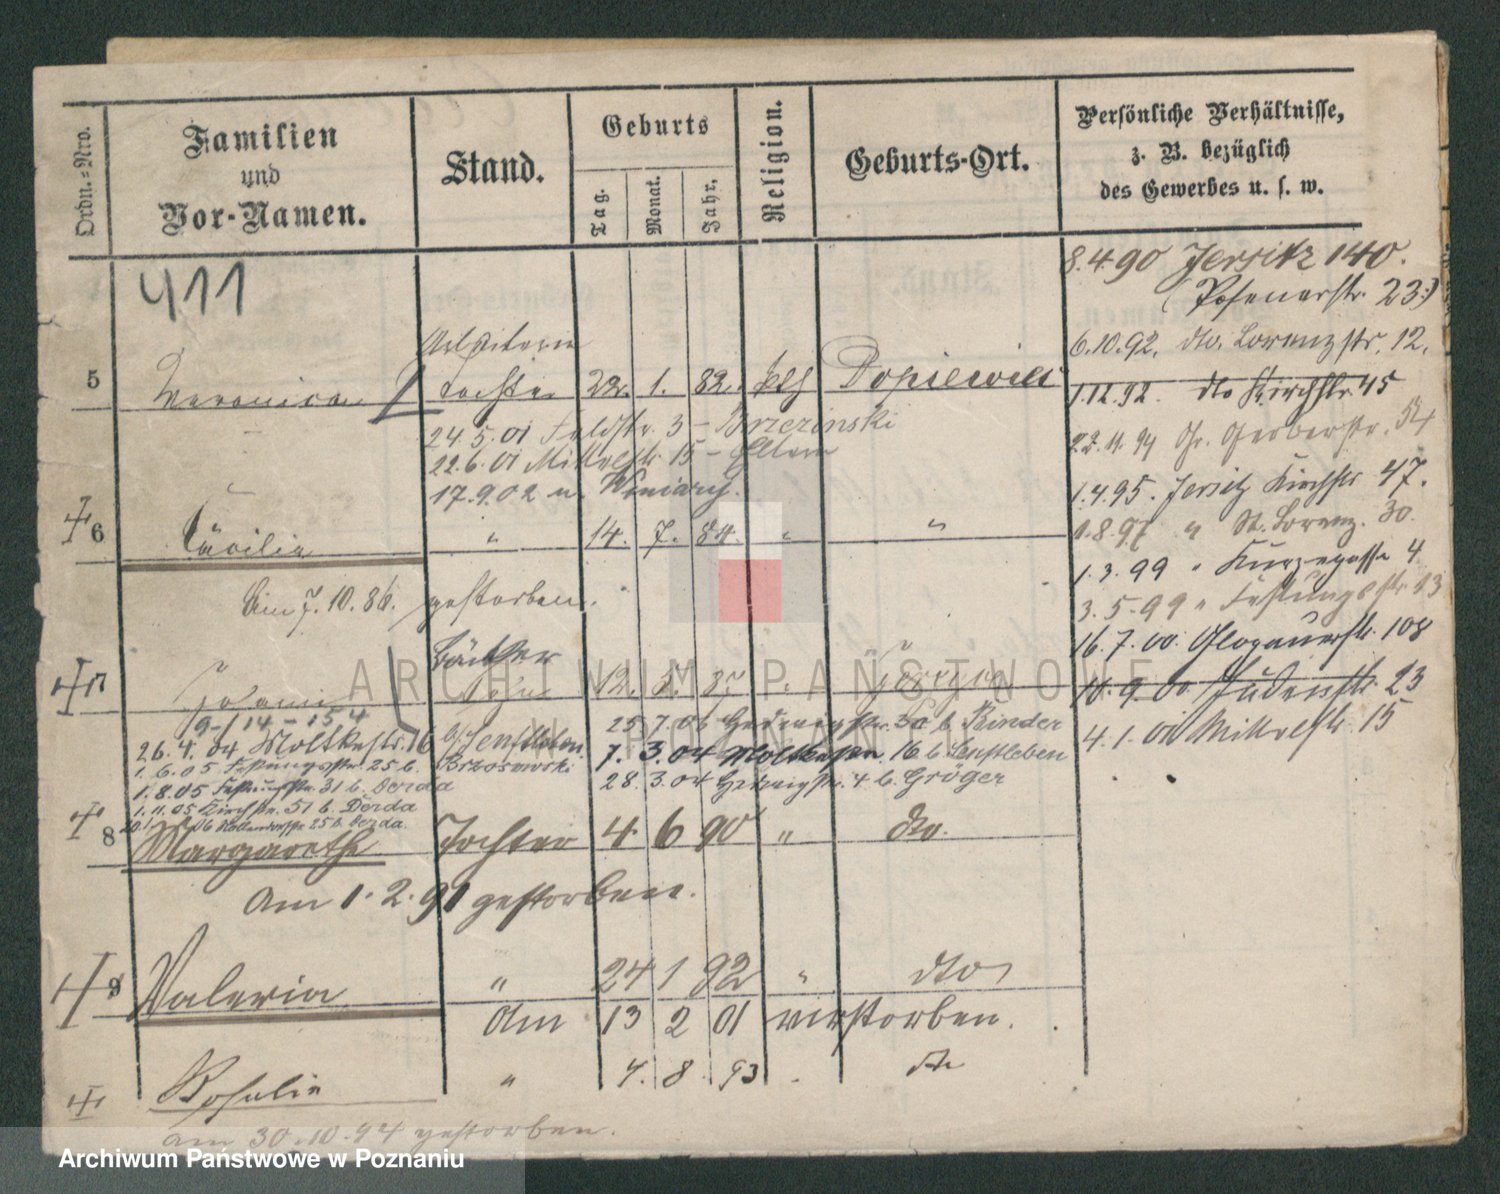 Ordn.-Nro.
Familien
und
Vor-Namen.
Stand.
Geburts
Tag.
Monat.
Jahr.
Religion.
Geburts-Ort.
Persönliche Verhältnisse,
z. B. bezüglich
des Gewerbes u. s. w.
411
8.4.90 Jersitz 140.
(Posenerstr. 23.)
6.10.92. dto. Lorenzstr. 12.
1.12.92. dto Kirchstr. 45
22.11.94 Gr. Gerberstr. 54
1.4.95. Jersitz Kirchstr 47.
1.8.97 " St. Lorenz. 30.
1.3.99 " Kurzegasse 4
3.5.99 " Festungsstr 13
16.7.00 Glogauerstr. 108
10.9.00 Judenstr. 23
4.1.01 Mittelstr 15
Arbeiterin
5 Veronica Tochter 22. 1. 82. kth Dopiewiec
24.5.01 Feldstr. 3 - Brzezinski
22.6.01 Mittelstr. 15 - Eltern
17.9.02 n. Winiary.
6 Cäcilie " 14. 7. 84. " "
Am 7.10.86. gestorben.
Bäcker
7 Sohn 12.
9-1 14-15 4
26.4.04 Moltkestr. 16 b/ Senftleben
1.6.05 Festungsstr. 25 b. Brzosowski
1.8.05 Festungsstr. 31 b. Derda
1.11.05 Kirchstr. 51 b. Derda
06 25 b. Derda.
25.7.06 Hedwigstr. 30 b. Binder
7.3.04 Moltkestr. 16 b Senftleben
28.3.04 Hedwigstr. 4 b. Gröger
8 Margarethe Tochter 4. 6 90 " dto.
Am 1.2.91 gestorben.
9 Valeria " 24 1 92 " dto
Am 13 2 01 verstorben.
Rosalie " 4. 8. 93 dto
am 30.10.94 gestorben.
ARCHIWUM PAŃSTWOWE
W POZNANIU
Archiwum Państwowe w Poznaniu